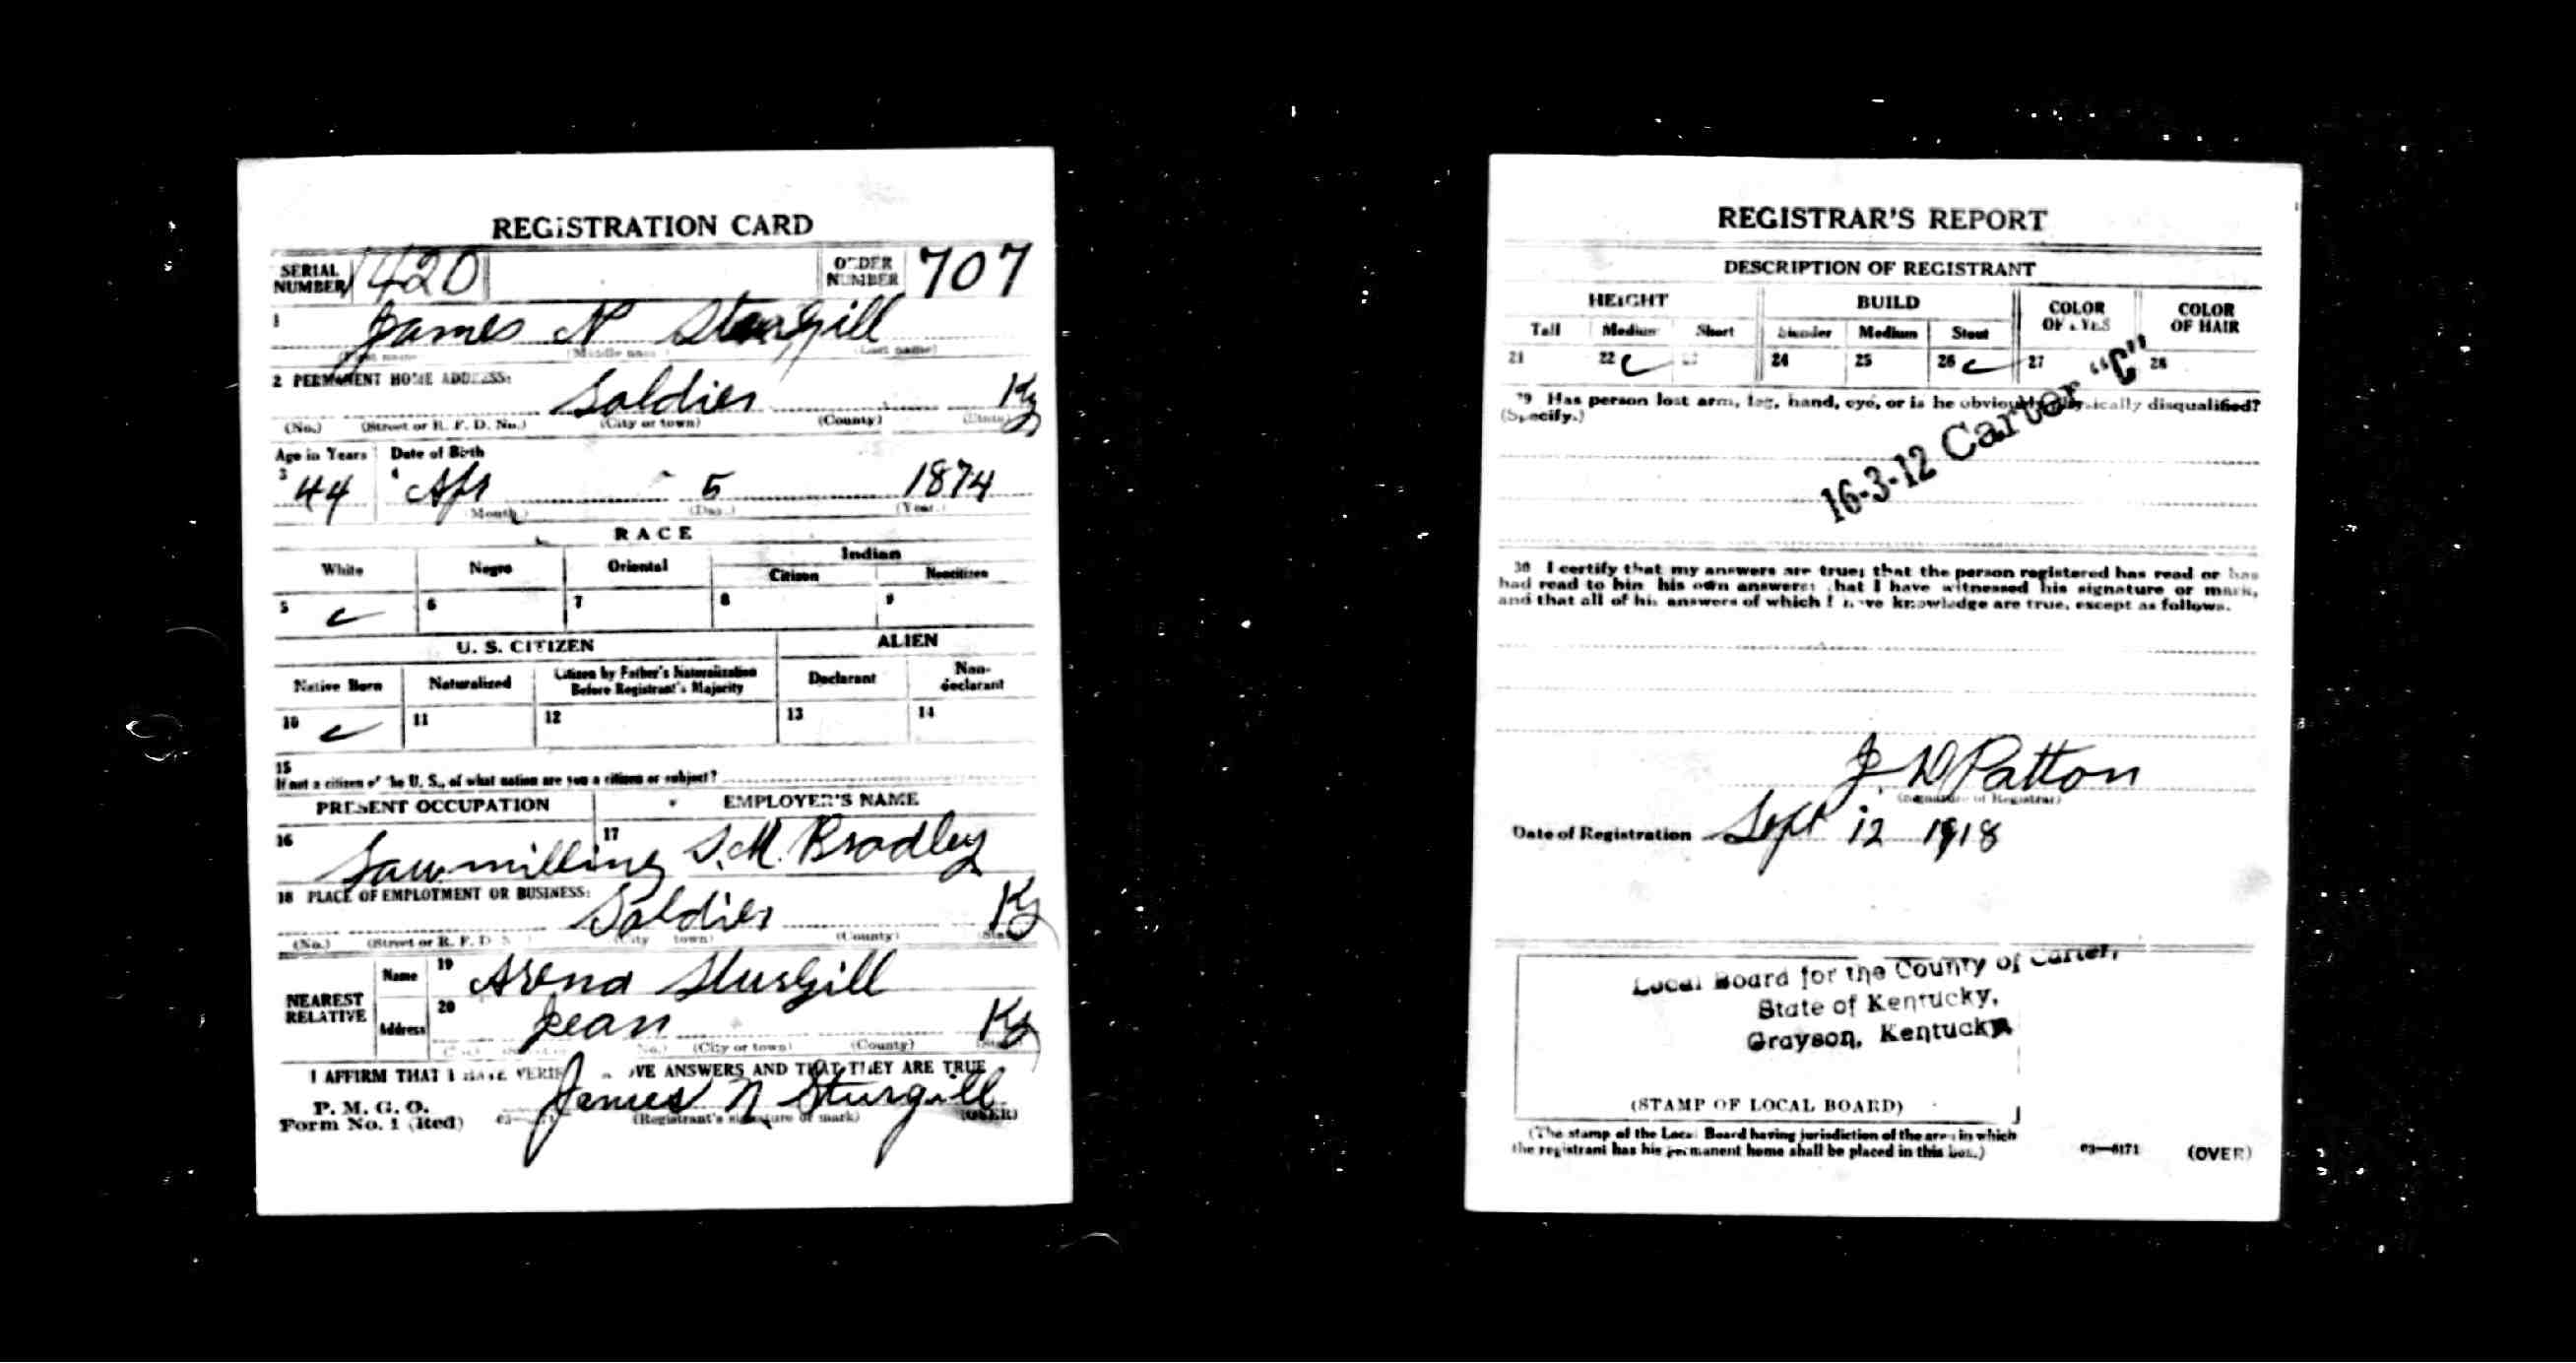 REGISTRATION CARD
SERIAL NUMBER 1420 ORDER NUMBER 707
1 James N Sturgill
(First name) (Middle name) (Last name)
2 PERMANENT HOME ADDRESS:
Soldier Ky
(No.) (Street or R. F. D. No.) (City or town) (County) (State)
Age in Years Date of Birth
3 44 4 Apr 5 1874
(Month.) (Day.) (Year.)
RACE
White Negro Oriental Indian
Citizen Noncitizen
5 6 7 8 9
U. S. CITIZEN ALIEN
Native Born Naturalized Citizen by Father's Naturalization Before Registrant's Majority Declarant Non-declarant
10 11 12 13 14
15
If not a citizen of the U. S., of what nation are you a citizen or subject?
PRESENT OCCUPATION EMPLOYER'S NAME
16 Sawmilling 17 S. M. Bradley
18 PLACE OF EMPLOYMENT OR BUSINESS:
Soldier Ky
(No.) (Street or R. F. D. (City town) (County) (State)
NEAREST RELATIVE Name 19 Arena Sturgill
Address 20 Jean Ky
No.) (City or town) (County) (State)
I AFFIRM THAT I HAVE VERIF OVE ANSWERS AND THAT THEY ARE TRUE
P. M. G. O.
Form No. 1 (Red) James N Sturgill
(Registrant's signature or mark) (OVER)
REGISTRAR'S REPORT
DESCRIPTION OF REGISTRANT
HEIGHT BUILD COLOR OF EYES COLOR OF HAIR
Tall Medium Short Slender Medium Stout
21 22 23 24 25 26 27 28
29 Has person lost arm, leg, hand, eye, or is he obviously physically disqualified?
(Specify.)
16-3-12 Carter "C"
30 I certify that my answers are true; that the person registered has read or has
had read to him his own answers; that I have witnessed his signature or mark,
and that all of his answers of which I have knowledge are true, except as follows.
J. D. Patton
(Signature of Registrar)
Date of Registration Sept 12 1918
Local Board for the County of Carter,
State of Kentucky,
Grayson, Kentucky
(STAMP OF LOCAL BOARD)
(The stamp of the Local Board having jurisdiction of the area in which
the registrant has his permanent home shall be placed in this box.)
03—6171 (OVER)